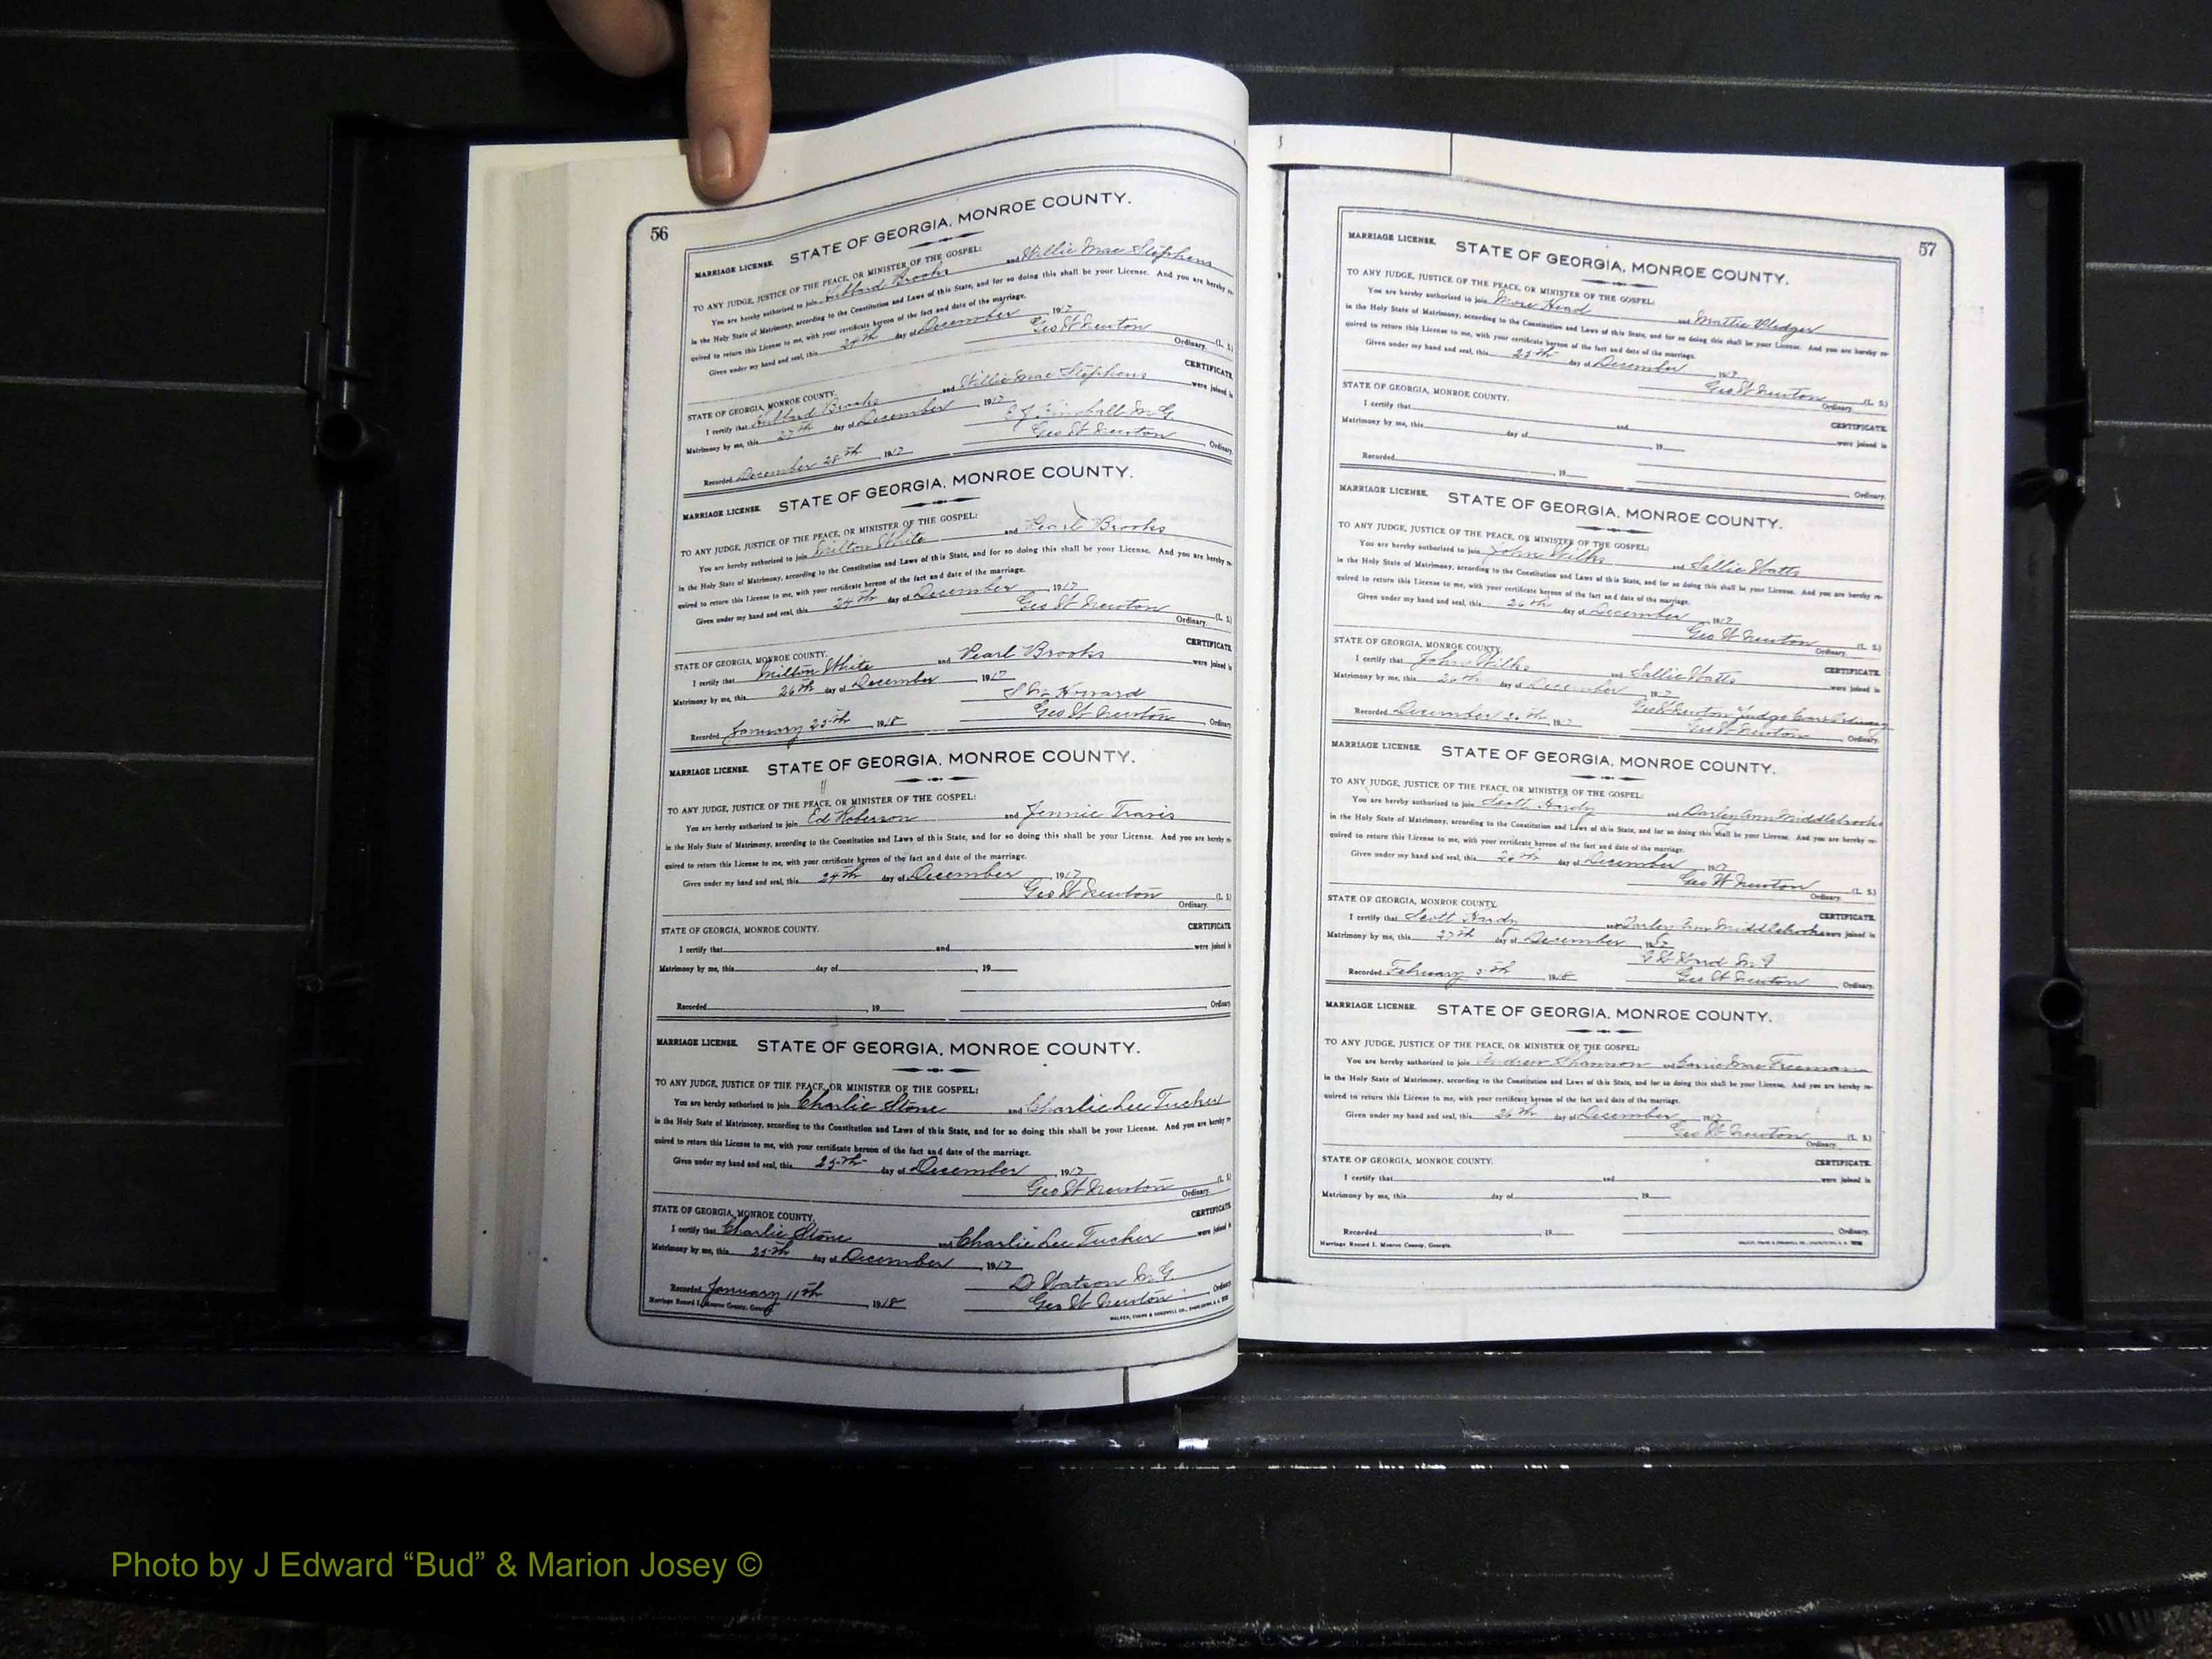 56
MARRIAGE LICENSE. STATE OF GEORGIA, MONROE COUNTY.
TO ANY JUDGE, JUSTICE OF THE PEACE, OR MINISTER OF THE GOSPEL:
You are hereby authorized to join Hibbard Brooks and Willie Mae Stephens
in the Holy State of Matrimony, according to the Constitution and Laws of this State, and for so doing this shall be your License. And you are hereby re-
quired to return this License to me, with your certificate hereon of the fact and date of the marriage.
Given under my hand and seal, this 24th day of December 1917
Geo W Newton (L. S.)
Ordinary.
STATE OF GEORGIA, MONROE COUNTY. CERTIFICATE
I certify that Hibbard Brooks and Willie Mae Stephens were joined in
Matrimony by me, this 27th day of December, 1917
Kimball M.G.
Recorded December 28th 1917 Geo W Newton, Ordinary.
MARRIAGE LICENSE. STATE OF GEORGIA, MONROE COUNTY.
TO ANY JUDGE, JUSTICE OF THE PEACE, OR MINISTER OF THE GOSPEL:
You are hereby authorized to join Milton White and Pearl Brooks
in the Holy State of Matrimony, according to the Constitution and Laws of this State, and for so doing this shall be your License. And you are hereby re-
quired to return this License to me, with your certificate hereon of the fact and date of the marriage.
Given under my hand and seal, this 24th day of December 1917
Geo W Newton (L. S.)
Ordinary.
STATE OF GEORGIA, MONROE COUNTY. CERTIFICATE
I certify that Milton White and Pearl Brooks were joined in
Matrimony by me, this 26th day of December, 1917
Howard
Recorded January 25th, 1918 Geo W Newton, Ordinary
MARRIAGE LICENSE. STATE OF GEORGIA, MONROE COUNTY.
TO ANY JUDGE, JUSTICE OF THE PEACE, OR MINISTER OF THE GOSPEL:
You are hereby authorized to join Ed Roberson and Jennie Travis
in the Holy State of Matrimony, according to the Constitution and Laws of this State, and for so doing this shall be your License. And you are hereby re-
quired to return this License to me, with your certificate hereon of the fact and date of the marriage.
Given under my hand and seal, this 24th day of December, 1917
Geo W Newton (L. S.)
Ordinary.
STATE OF GEORGIA, MONROE COUNTY. CERTIFICATE
I certify that and were joined in
Matrimony by me, this day of , 19
Recorded , 19 , Ordinary
MARRIAGE LICENSE. STATE OF GEORGIA, MONROE COUNTY.
TO ANY JUDGE, JUSTICE OF THE PEACE, OR MINISTER OF THE GOSPEL:
You are hereby authorized to join Charlie Stone and Charlie Lee Tucker
in the Holy State of Matrimony, according to the Constitution and Laws of this State, and for so doing this shall be your License. And you are hereby re-
quired to return this License to me, with your certificate hereon of the fact and date of the marriage.
Given under my hand and seal, this 25th day of December, 1917
Geo W Newton (L. S.)
Ordinary.
STATE OF GEORGIA, MONROE COUNTY. CERTIFICATE
I certify that Charlie Stone and Charlie Lee Tucker were joined in
Matrimony by me, this 25th day of December, 1917
D Watson M.G.
Recorded January 11th, 1918 Geo W Newton, Ordinary
Marriage Record I. Monroe County, Georgia. WALKER, EVANS & COGSWELL CO., CHARLESTON, S. C.
57
MARRIAGE LICENSE. STATE OF GEORGIA, MONROE COUNTY.
TO ANY JUDGE, JUSTICE OF THE PEACE, OR MINISTER OF THE GOSPEL:
You are hereby authorized to join Mose Head and Mattie Pledger
in the Holy State of Matrimony, according to the Constitution and Laws of this State, and for so doing this shall be your License. And you are hereby re-
quired to return this License to me, with your certificate hereon of the fact and date of the marriage.
Given under my hand and seal, this 25th day of December, 1917
Geo W Newton (L. S.)
Ordinary.
STATE OF GEORGIA, MONROE COUNTY. CERTIFICATE.
I certify that and were joined in
Matrimony by me, this day of , 19
Recorded , 19 Ordinary.
MARRIAGE LICENSE. STATE OF GEORGIA, MONROE COUNTY.
TO ANY JUDGE, JUSTICE OF THE PEACE, OR MINISTER OF THE GOSPEL:
You are hereby authorized to join John Wilks and Sallie Watts
in the Holy State of Matrimony, according to the Constitution and Laws of this State, and for so doing this shall be your License. And you are hereby re-
quired to return this License to me, with your certificate hereon of the fact and date of the marriage.
Given under my hand and seal, this 26th day of December, 1917
Geo W Newton (L. S.)
Ordinary.
STATE OF GEORGIA, MONROE COUNTY. CERTIFICATE.
I certify that John Wilks and Sallie Watts were joined in
Matrimony by me, this 26th day of December, 1917
Geo W Newton Judge Court Ordinary
Recorded December 26th, 1917 Geo W Newton, Ordinary.
MARRIAGE LICENSE. STATE OF GEORGIA, MONROE COUNTY.
TO ANY JUDGE, JUSTICE OF THE PEACE, OR MINISTER OF THE GOSPEL:
You are hereby authorized to join Scott Hardy and Darley Ann Middlebrooks
in the Holy State of Matrimony, according to the Constitution and Laws of this State, and for so doing this shall be your License. And you are hereby re-
quired to return this License to me, with your certificate hereon of the fact and date of the marriage.
Given under my hand and seal, this 26th day of December, 1917
Geo W Newton (L. S.)
Ordinary.
STATE OF GEORGIA, MONROE COUNTY. CERTIFICATE.
I certify that Scott Hardy and Darley Ann Middlebrooks were joined in
Matrimony by me, this 27th day of December, 1917
M.G.
Recorded February 5th, 1918 Geo W Newton, Ordinary.
MARRIAGE LICENSE. STATE OF GEORGIA, MONROE COUNTY.
TO ANY JUDGE, JUSTICE OF THE PEACE, OR MINISTER OF THE GOSPEL:
You are hereby authorized to join Andrew Shannon and Mae Freeman
in the Holy State of Matrimony, according to the Constitution and Laws of this State, and for so doing this shall be your License. And you are hereby re-
quired to return this License to me, with your certificate hereon of the fact and date of the marriage.
Given under my hand and seal, this 26th day of December, 1917
Geo W Newton (L. S.)
Ordinary.
STATE OF GEORGIA, MONROE COUNTY. CERTIFICATE.
I certify that and were joined in
Matrimony by me, this day of , 19
Recorded , 19 , Ordinary.
Marriage Record I. Monroe County, Georgia.
Photo by J Edward “Bud” & Marion Josey ©